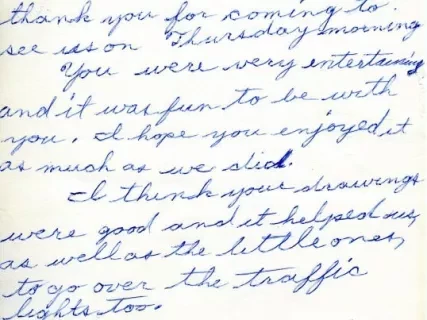 thank you for coming to
see us on Thursday morning
You were very entertaining
and it was fun to be with
you. I hope you enjoyed it
as much as we did.
I think your drawings
were good and it helped us,
as well as the little ones,
to go over the traffic
lights too.